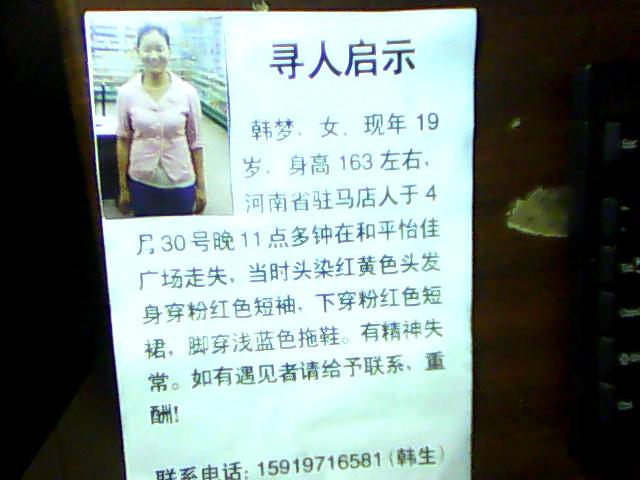 寻人启示
韩梦、女、现年 19
岁、身高 163 左右，
河南省驻马店人于 4
月 30 号晚 11 点多钟在和平怡佳
广场走失，当时头染红黄色头发
身穿粉红色短袖，下穿粉红色短
裙，脚穿浅蓝色拖鞋。有精神失
常。如有遇见者请给予联系，重
酬！
联系电话：15919716581（韩生）